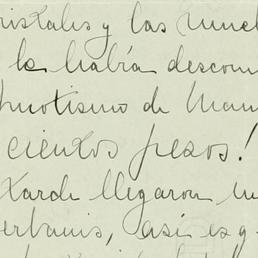 ristales y las
la había descom
notismo de Mam
cientos pesos!
tarde llegaron un
erbanis, así es q